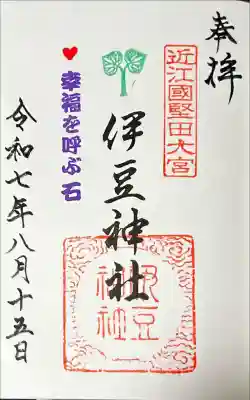 奉拝
近江國堅田大宮
伊豆神社
伊豆神社
♥幸福を呼ぶ石
令和七年八月十五日